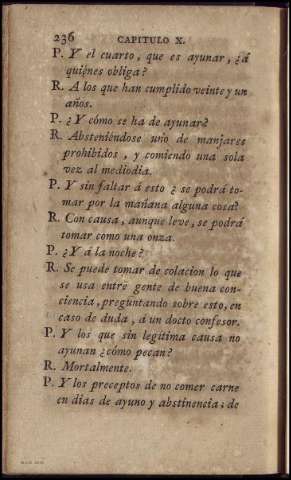 236 CAPITULO X.
P. Y el cuarto, que es ayunar, ¿á
quiénes obliga?
R. A los que han cumplido veinte y un
años.
P. ¿Y cómo se ha de ayunar?
R. Absteniéndose uno de manjares
prohibidos, y comiendo una sola
vez al mediodia.
P. Y sin faltar á esto ¿se podrá to-
mar por la mañana alguna cosa?
R. Con causa, aunque leve, se podrá
tomar como una onza.
P. ¿Y á la noche?
R. Se puede tomar de colacion lo que
se usa entre gente de buena con-
ciencia, preguntando sobre esto, en
caso de duda, á un docto confesor.
P. Y los que sin legítima causa no
ayunan ¿cómo pecan?
R. Mortalmente.
P. Y los preceptos de no comer carne
en dias de ayuno y abstinencia; de